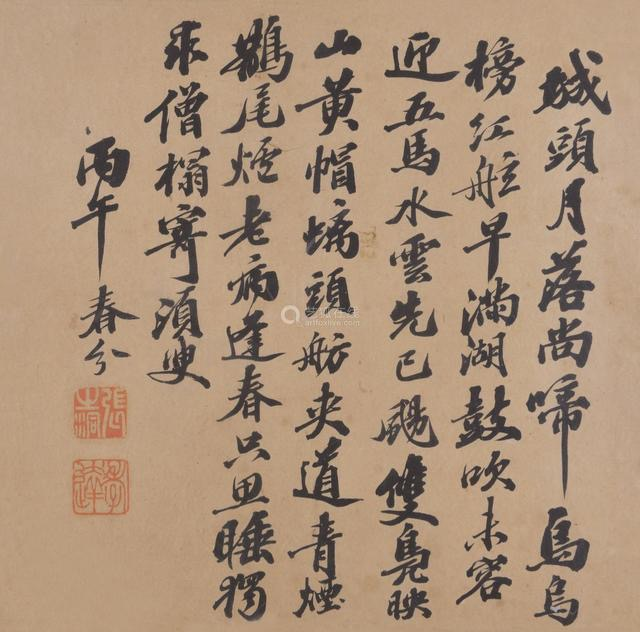 城頭月落尚啼烏烏
榜紅舷早滿湖鼓吹未容
迎五馬水雲先已颺雙鳧映
山黃帽螭頭舫夾道青煙
鵲尾爐老病逢春只思睡獨
求僧榻寄須臾
丙午春分
張
艺狐在线
artfoxlive.com